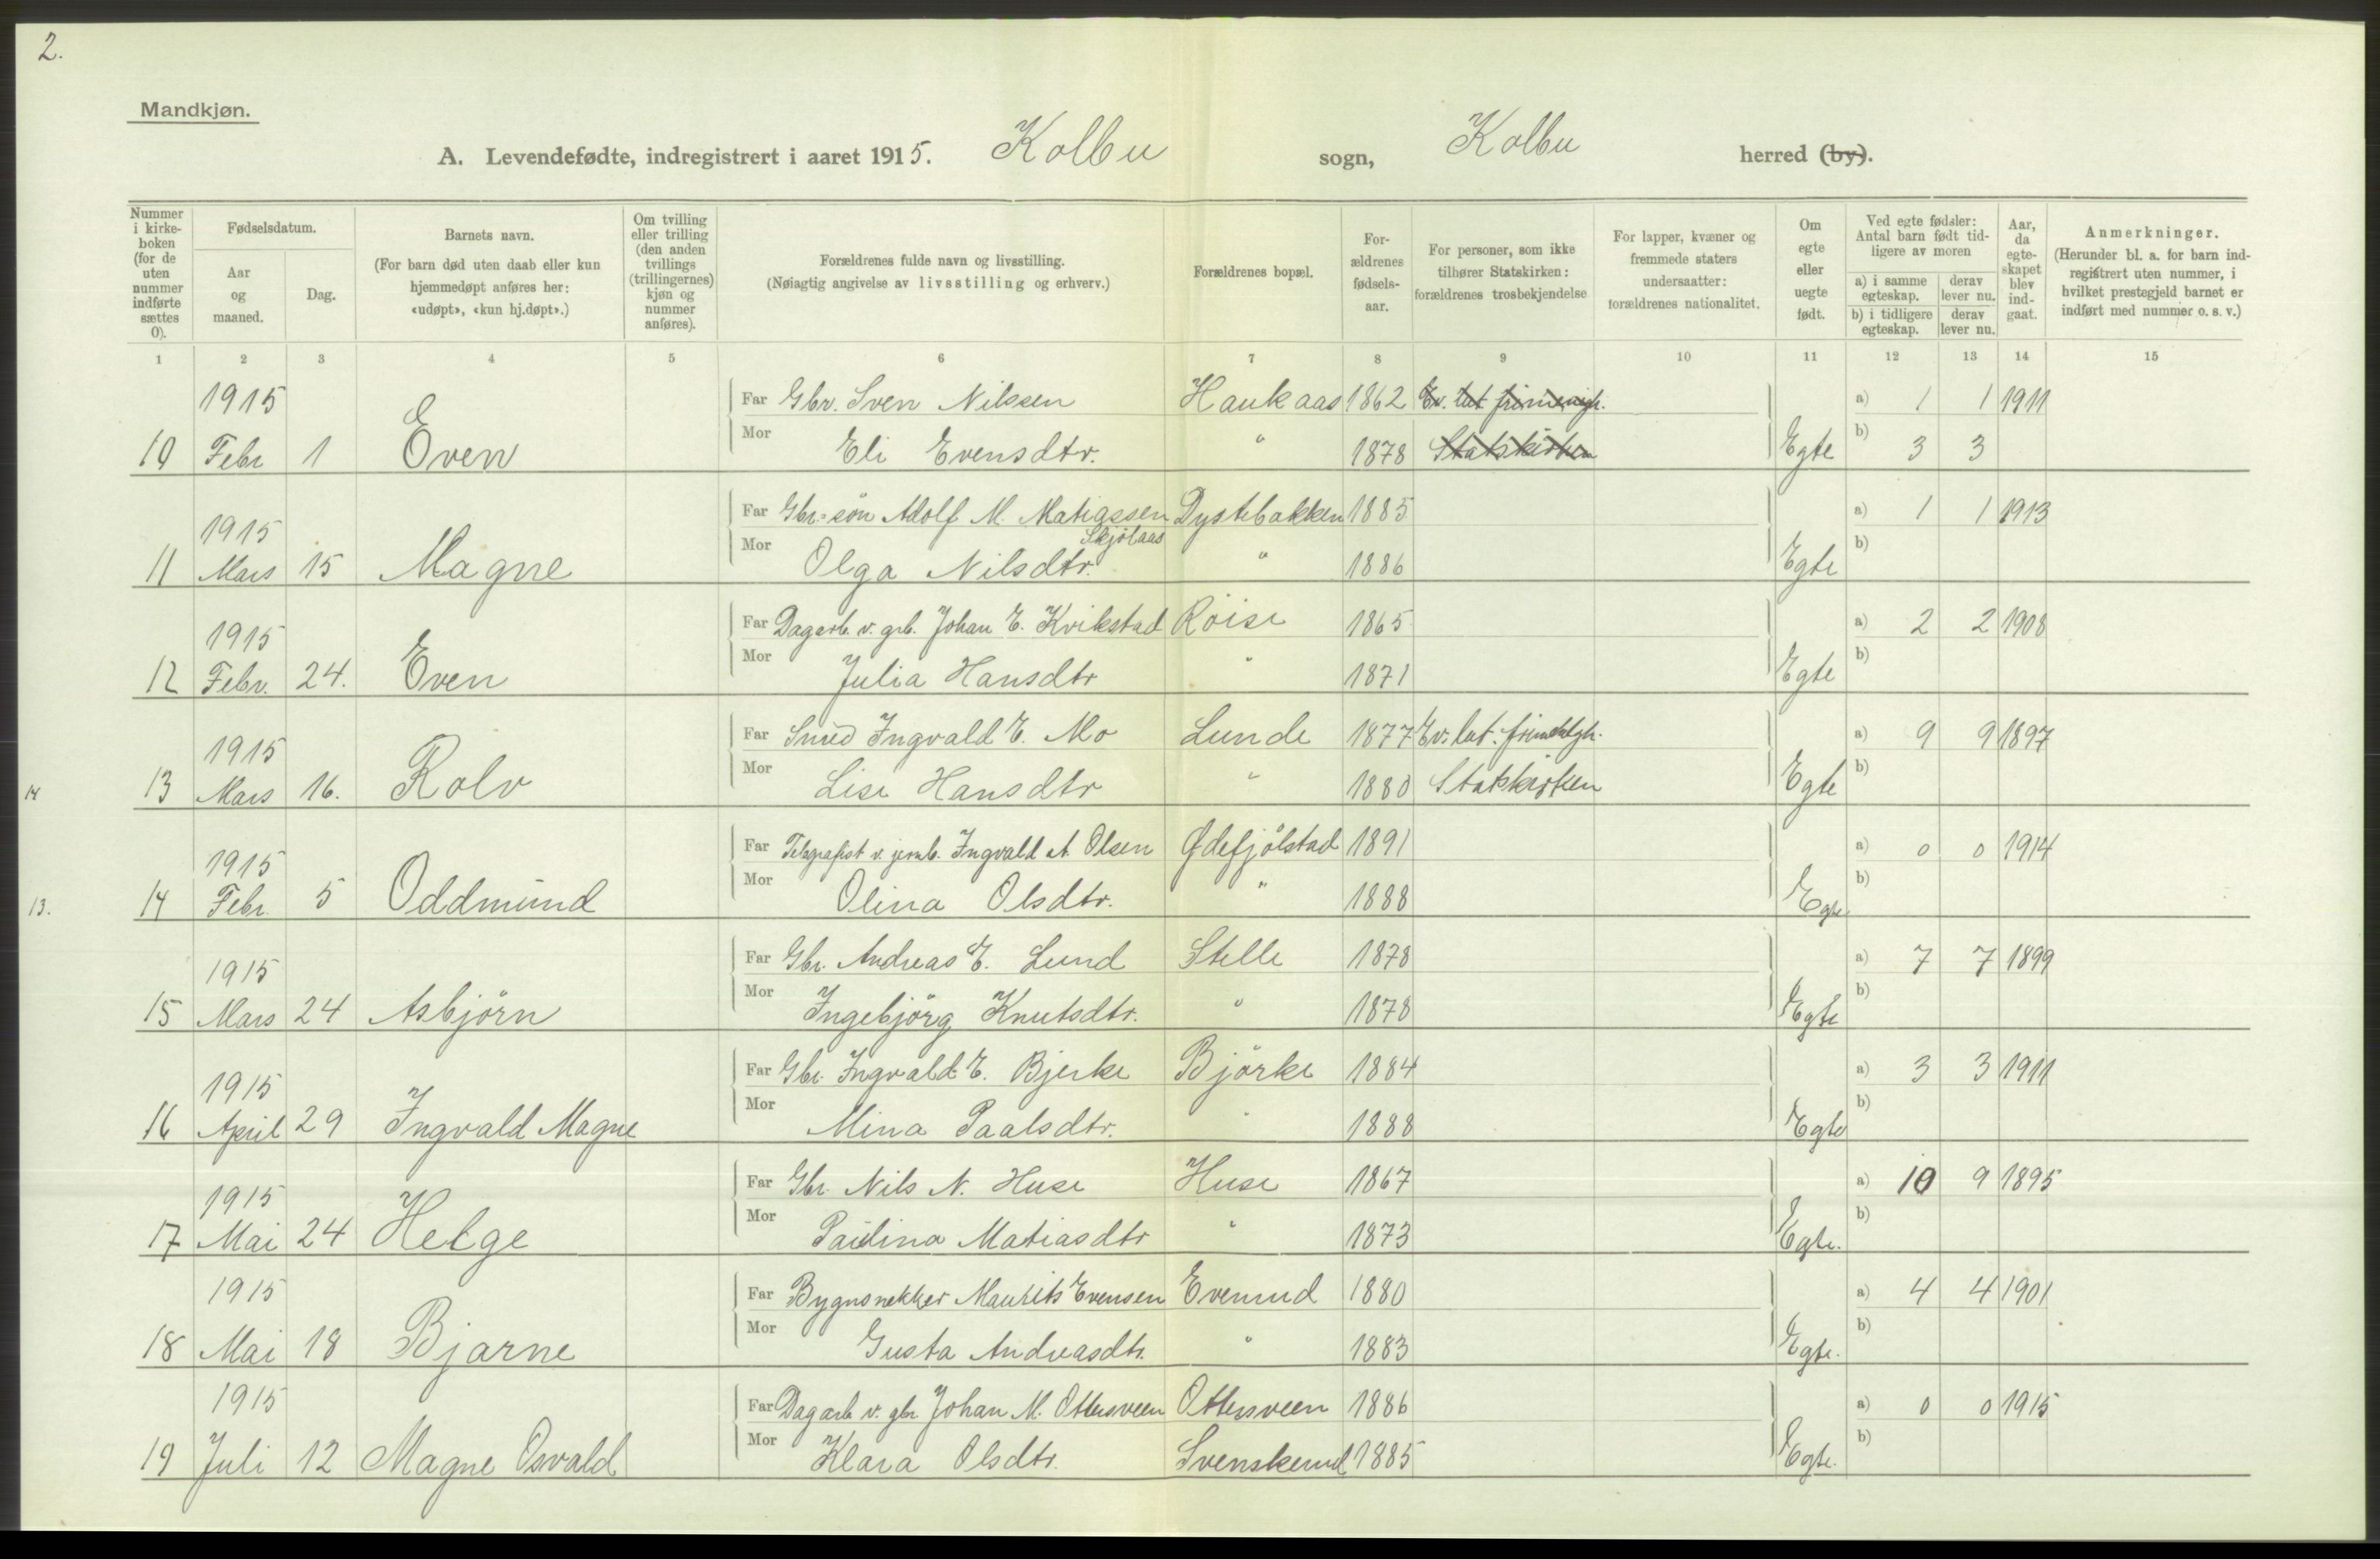 2.
Mandkjøn.
A. Levendefødte, indregistrert i aaret 1915. Kolbu sogn, Kolbu herred (by).
Nummer i kirkeboken (for de uten nummer indførte sættes 0).
Fødselsdatum.
Aar og maaned.
Dag.
Barnets navn.
(For barn død uten daab eller kun hjemmedøpt anføres her: «udøpt», «kun hj.døpt».)
Om tvilling eller trilling (den anden tvillings (trillingernes) kjøn og nummer anføres).
Forældrenes fulde navn og livsstilling.
(Nøiagtig angivelse av livsstilling og erhverv.)
Forældrenes bopæl.
Forældrenes fødselsaar.
For personer, som ikke tilhører Statskirken: forældrenes trosbekjendelse
For lapper, kvæner og fremmede staters undersaatter: forældrenes nationalitet.
Om egte eller uegte født.
Ved egte fødsler: Antal barn født tidligere av moren
a) i samme egteskap. derav lever nu.
b) i tidligere egteskap. derav lever nu.
Aar, da egteskapet blev indgaat.
Anmerkninger.
(Herunder bl. a. for barn indregistrert uten nummer, i hvilket prestegjeld barnet er indført med nummer o. s. v.)
1 2 3 4 5 6 7 8 9 10 11 12 13 14 15
1915 Far Gbr. Sven Nilssen Haukaas 1862 Ev. lut frimenigh. a) 1 1 1911
10 Febr 1 Even Mor Eli Evensdtr. " 1878 Statskirken Egte b) 3 3
1915 Far Gbr.-søn Adolf M. Matiassen Dystebakken 1885 a) 1 1 1913
Skjølaas
11 Mars 15 Magne Mor Olga Nilsdtr. " 1886 Egte b)
1915 Far Dagarb. v. grb. Johan E. Kvikstad Röise 1865 a) 2 2 1908
12 Febr. 24. Even Mor Julia Hansdtr " 1871 Egte b)
1915 Far Smed Ingvald E. Mo Lunde 1877 Ev. lut. a) 9 9 1897
14 13 Mars 16. Rolv Mor Lise Hansdtr " 1880 Statskirken Egte b)
1915 Far Telegrafist v. jernb. Ingvald A. Olsen Ødefjölstad 1891 a) 0 0 1914
13. 14 Febr. 5 Oddmund Mor Olina Olsdtr. " 1888 Egte b)
1915 Far Gbr. Andreas E. Lund Stelle 1878 a) 7 7 1899
15 Mars 24 Asbjörn Mor Ingebjörg Knutsdtr. " 1878 Egte b)
1915 Far Gbr. Ingvald E. Bjerke Björke 1884 a) 3 3 1911
16 April 29 Ingvald Magne Mor Mina Paalsdtr. " 1888 Egte b)
1915 Far Gbr. Nils N. Huse Huse 1867 a) 10 9 1895
17 Mai 24 Helge Mor Paulina Matiasdtr " 1873 Egte. b)
1915 Far Bygnsnekker Maurits Evensen Evenrud 1880 a) 4 4 1901
18 Mai 18 Bjarne Mor Gusta Andreasdtr. " 1883 Egte. b)
1915 Far Dagarb v. gbr Johan M. Ottersveen Ottersveen 1886 a) 0 0 1915
19 Juli 12 Magne Osvald Mor Klara Olsdtr. Svenskerud 1885 Egte. b)